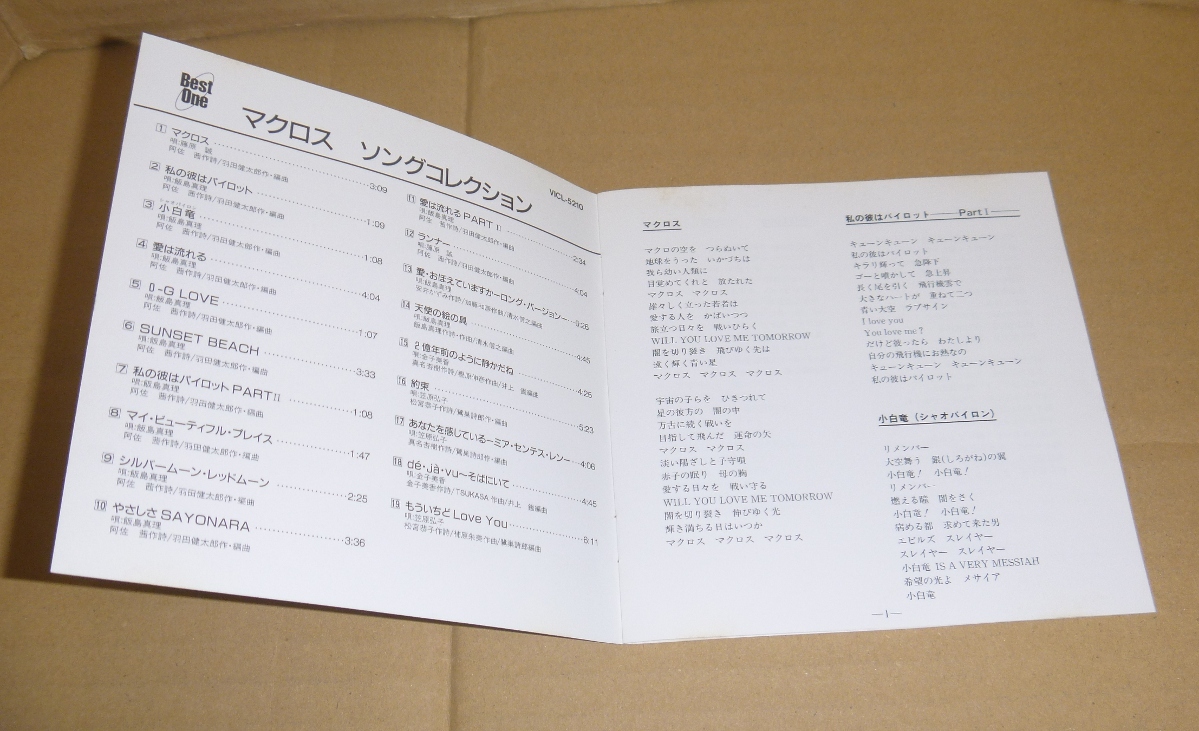 Best
One
マクロス ソングコレクション
VICL-5210
1 マクロス 3:09
唄:藤原 誠
阿佐 茜作詩/羽田健太郎作・編曲
2 私の彼はパイロット 1:09
唄:飯島真理
阿佐 茜作詩/羽田健太郎作・編曲
シャオパイロン
3 小白竜 1:08
唄:飯島真理
阿佐 茜作詩/羽田健太郎作・編曲
4 愛は流れる 4:04
唄:飯島真理
阿佐 茜作詩/羽田健太郎作・編曲
5 0-G LOVE 1:07
唄:飯島真理
阿佐 茜作詩/羽田健太郎作・編曲
6 SUNSET BEACH 3:33
唄:飯島真理
阿佐 茜作詩/羽田健太郎作・編曲
7 私の彼はパイロット PARTⅡ 1:08
唄:飯島真理
阿佐 茜作詩/羽田健太郎作・編曲
8 マイ・ビューティフル・プレイス 1:47
唄:飯島真理
阿佐 茜作詩/羽田健太郎作・編曲
9 シルバームーン・レッドムーン 2:25
唄:飯島真理
阿佐 茜作詩/羽田健太郎作・編曲
10 やさしさ SAYONARA 3:36
唄:飯島真理
阿佐 茜作詩/羽田健太郎作・編曲
11 愛は流れる PART Ⅱ 2:34
唄:飯島真理
阿佐 茜作詩/羽田健太郎作・編曲
12 ランナー 4:04
唄:藤原 誠
阿佐 茜作詩/羽田健太郎作・編曲
13 愛・おぼえていますか〜ロング・バージョン〜 3:26
唄:飯島真理
安井かずみ作詩/加藤和彦作曲/清水信之編曲
14 天使の絵の具 4:45
唄:飯島真理
飯島真理作詩・作曲/清水信之編曲
15 2億年前のように静かだね 4:25
唄:金子美香
真名杏樹作詩/
16 約束 5:23
唄:笠原弘子
松宮恭子作詩/鷺巣詩郎作・編曲
17 あなたを感じている〜ミア・センテス・レン〜 4:06
唄:笠原弘子
真名杏樹作詩/鷺巣詩郎作・編曲
18 dé・jà・vu〜そばにいて 4:45
唄:金子美香
金子美香作詩/TSUKASA作曲/井上 鑑編曲
19 もういちど Love You 6:11
唄:笠原弘子
松宮恭子作詩/鷺巣詩郎編曲
マクロス
マクロの空を つらぬいて
地球をうった いかづちは
我ら幼い人類に
目覚めてくれと 放たれた
マクロス マクロス
崖々しく立った若者は
愛する人を かばいつつ
旅立つ日々を 戦いひらく
WILL YOU LOVE ME TOMORROW
闇を切り裂き 飛びゆく先は
遠く輝く青い星
マクロス マクロス マクロス
宇宙の子らを ひきつれて
星の彼方の 闇の中
万古に続く戦いを
目指して飛んだ 運命の矢
マクロス マクロス
淡い陽ざしと子守唄
赤子の眠り 母の胸
愛する日々を 戦い守る
WILL YOU LOVE ME TOMORROW
闇を切り裂き 伸びゆく光
輝き満ちる日はいつか
マクロス マクロス マクロス
私の彼はパイロット――Part Ⅰ――
キューンキューン キューンキューン
私の彼はパイロット
キラリ輝って 急降下
ゴーと噴かして 急上昇
長く尾を引く 飛行機雲で
大きなハートが 重ねて二つ
青い大空 ラブサイン
I love you
You love me?
だけど彼ったら わたしより
自分の飛行機にお熱なの
キューンキューン キューンキューン
私の彼はパイロット
小白竜(シャオパイロン)
リメンバー
大空舞う 銀(しろがね)の翼
小白竜! 小白竜!
リメンバー
燃える瞳 闇をさく
小白竜! 小白竜!
病める都 求めて来た男
エビルズ スレイヤー
スレイヤー スレイヤー
小白竜 IS A VERY MESSIAH
希望の光よ メサイア
小白竜
—1—